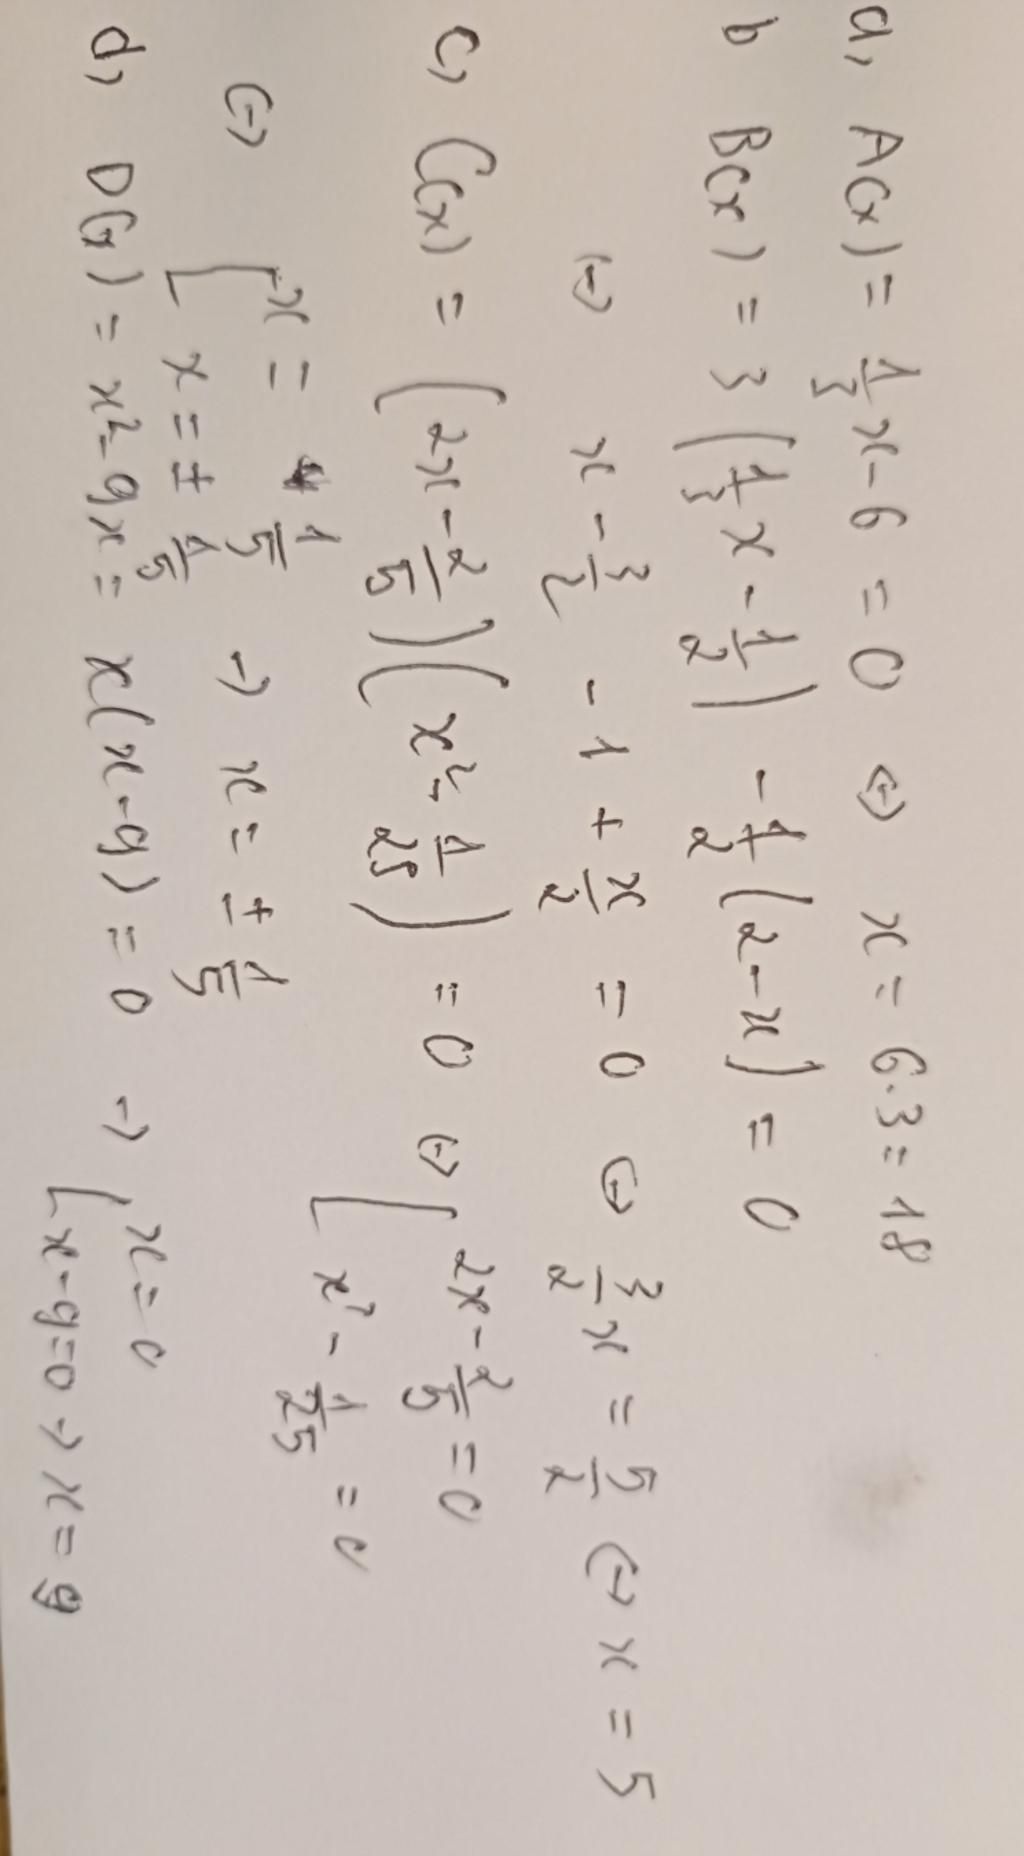 a, A(x) = 1/3 x - 6 = 0 <-> x = 6.3 = 18
b B(x) = 3 (1/3 x - 1/2) - 1/2 (2 - x) = 0
<-> x - 3/2 - 1 + x/2 = 0 <-> 3/2 x = 5/2 <-> x = 5
c, C(x) = (2x - 2/5)(x² - 1/25) = 0 <-> [ 2x - 2/5 = 0
x² - 1/25 = 0
<-> [ x = 1/5
x = ± 1/5 -> x = ± 1/5
d, D(x) = x² - 9x = x(x - 9) = 0 -> [ x = 0
x - 9 = 0 -> x = 9